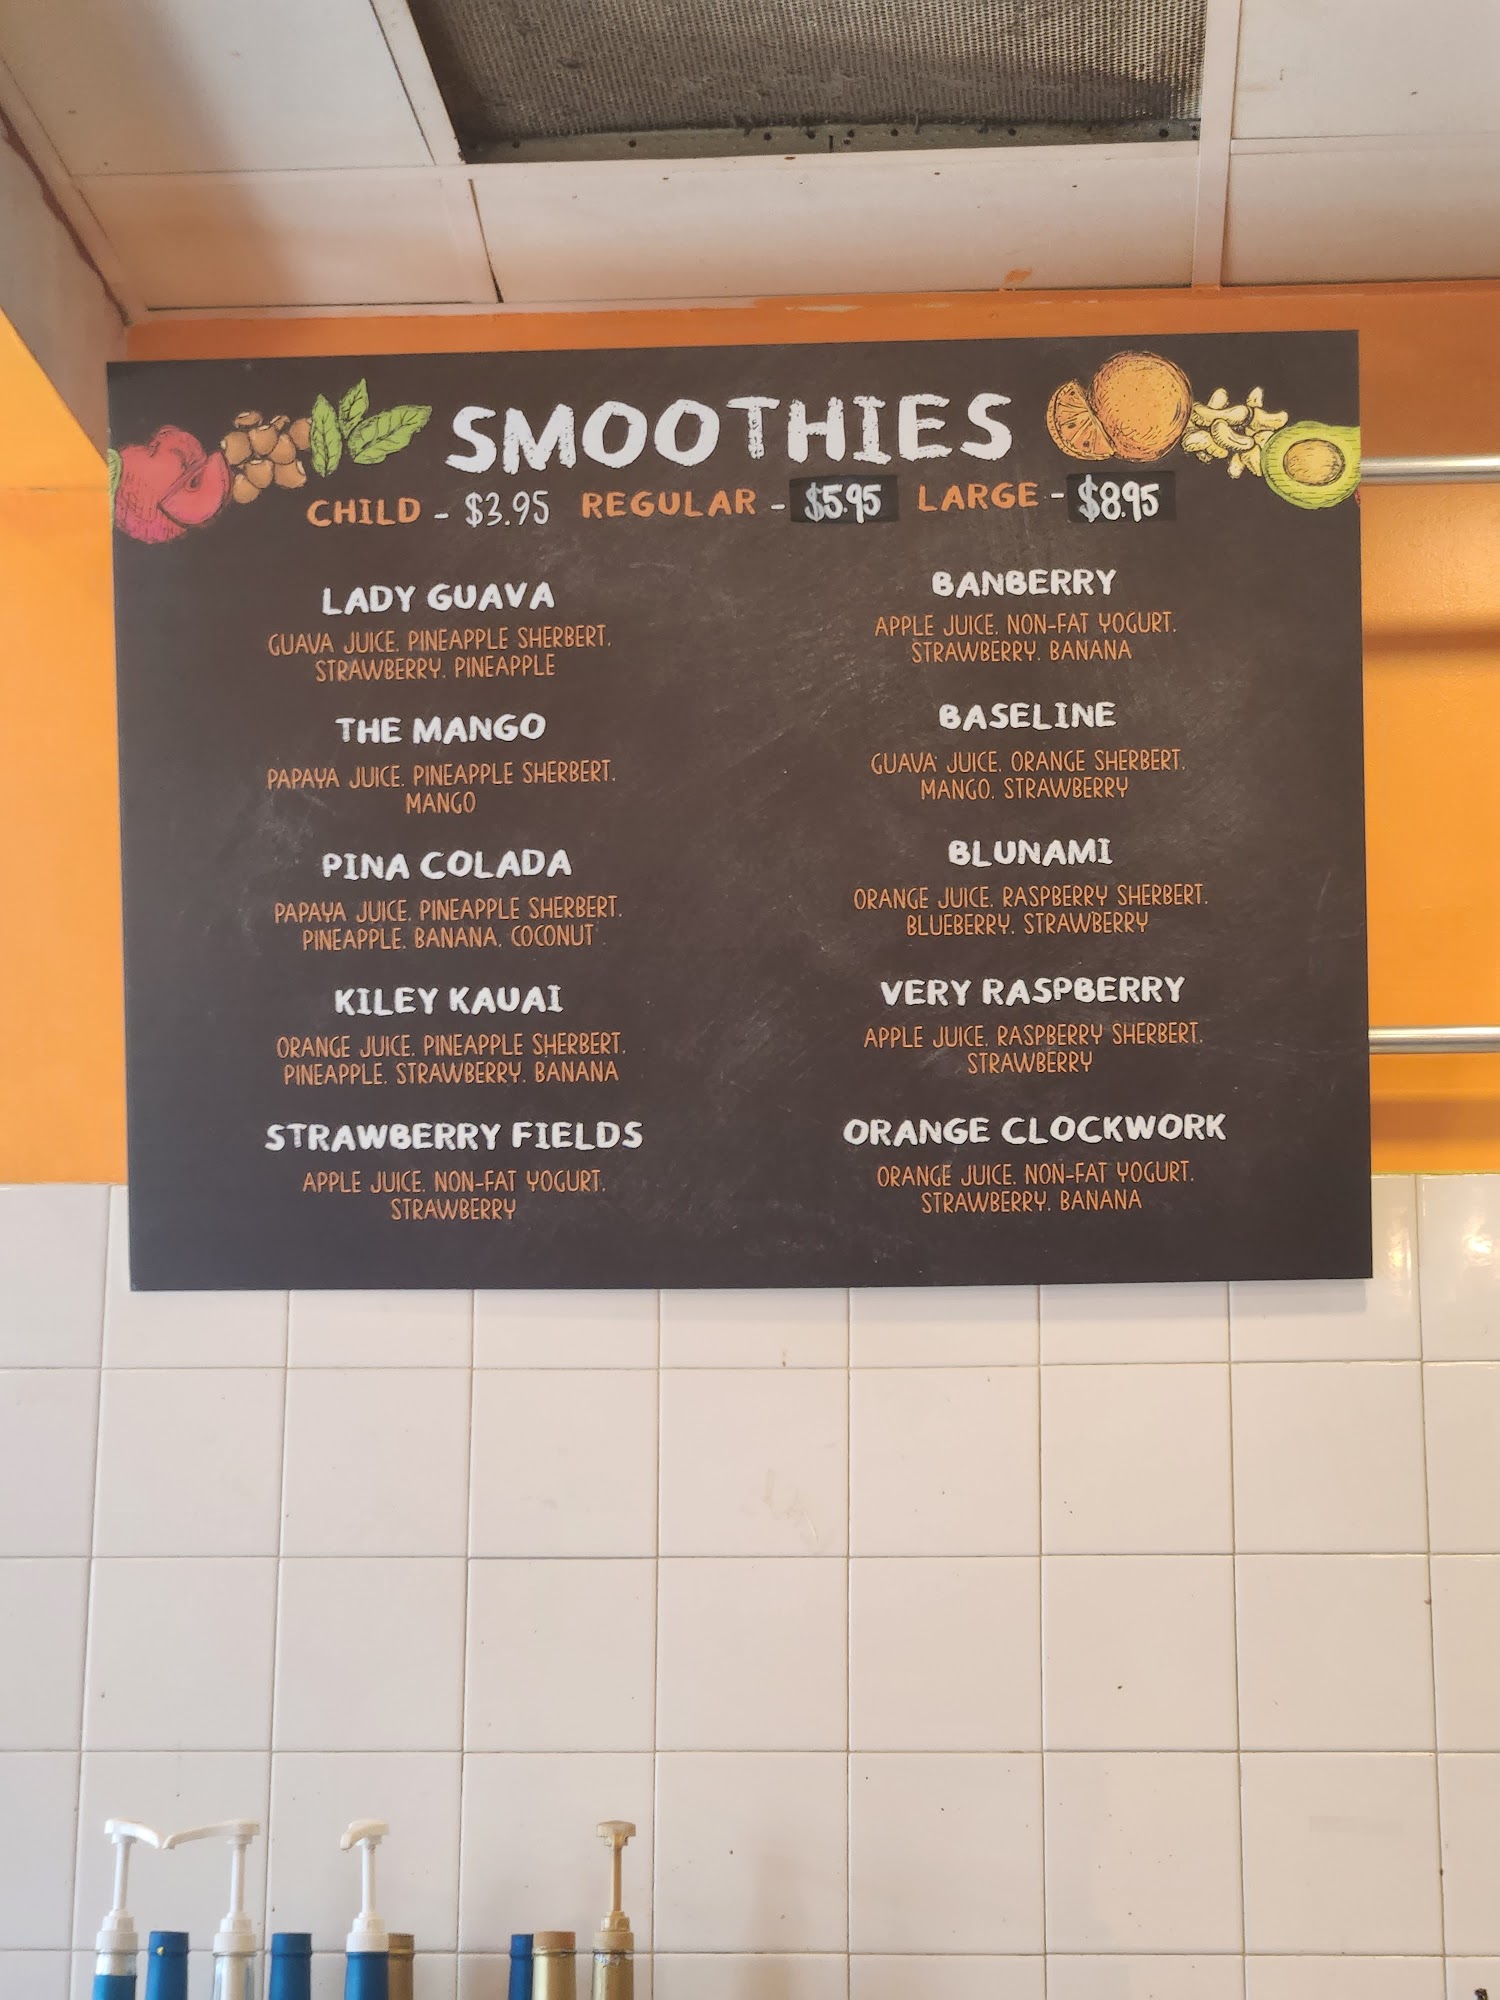 SMOOTHIES
CHILD - $3.95 REGULAR - $5.95 LARGE - $8.95
LADY GUAVA
GUAVA JUICE, PINEAPPLE SHERBERT,
STRAWBERRY, PINEAPPLE
THE MANGO
PAPAYA JUICE, PINEAPPLE SHERBERT,
MANGO
PINA COLADA
PAPAYA JUICE, PINEAPPLE SHERBERT,
PINEAPPLE, BANANA, COCONUT
KILEY KAUAI
ORANGE JUICE, PINEAPPLE SHERBERT,
PINEAPPLE, STRAWBERRY, BANANA
STRAWBERRY FIELDS
APPLE JUICE, NON-FAT YOGURT,
STRAWBERRY
BANBERRY
APPLE JUICE, NON-FAT YOGURT,
STRAWBERRY, BANANA
BASELINE
GUAVA JUICE, ORANGE SHERBERT,
MANGO, STRAWBERRY
BLUNAMI
ORANGE JUICE, RASPBERRY SHERBERT,
BLUEBERRY, STRAWBERRY
VERY RASPBERRY
APPLE JUICE, RASPBERRY SHERBERT,
STRAWBERRY
ORANGE CLOCKWORK
ORANGE JUICE, NON-FAT YOGURT,
STRAWBERRY, BANANA